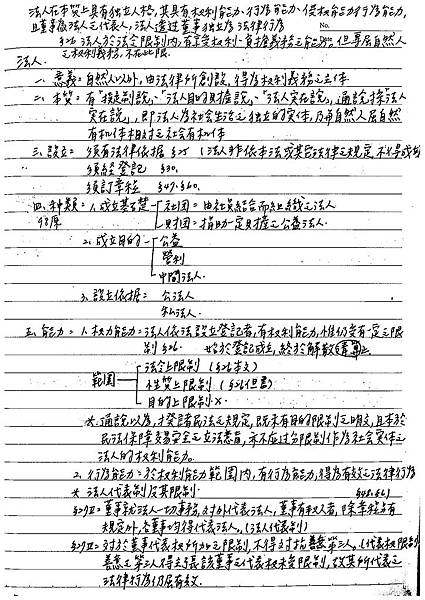 法人在本質上具有獨立人格,其具有权利能力、行為能力、侵权能力
且董事為法人之代表人,法人透过董事獨立為法律行為
No.
§26 法人於法令限制內,有享受权利、負擔義務之能力。但專屬自然人
之权利義務,不在此限。
法人.
一、意義:自然人以外,由法律所創設,得為权利義務之主体
二、本質:有「擬制說」、「法人目的財產說」、「法人实在說」,通說採法人
实在說」,即法人為社会生活之獨立的实体,乃與自然人居自然
有机体相对之社会有机体
三、設立:須有法律依據 §25 (法人非依本法或其它法律之規定,不得成立
須經登記 §30.
須訂章程 §47.§60.
四、种類:1.成立基礎 社团=由社員結合而組織之法人
财团=捐助一定財產之公益法人.
2.成立目的 公益
營利
中間法人.
3.設立依據= 公法人
私法人.
五、能力= 1.权利能力=法人依法設立登記者,有权利能力,惟仍受有一定之限
制 §26. 始於登記成立,終於解散清算
範圍 法令上限制 (§26本文)
性質上限制 (§26但書)
目的上限制 ×.
*.通說以為,我民法之規定,既未有目的限制之明文,且本於
民法保障交易安全之立法意旨,亦不应过分限制作為社会实体之
法人的权利能力。
2.行為能力=於权利能力範圍內,有行為能力,得為有效之法律行為
* 法人代表制及其限制.
§27Ⅱ=董事就法人一切事務,对外代表法人,董事有数人者,除章程另有
規定外,各董事均得代表法人。(法人代表制)
§27Ⅲ=对於董事代表权所加之限制,不得对抗善意第三人。(代表权限制)
善意之第三人得主張該董事之代表权未受限制,故其所代表之
法律行為仍屬有效.